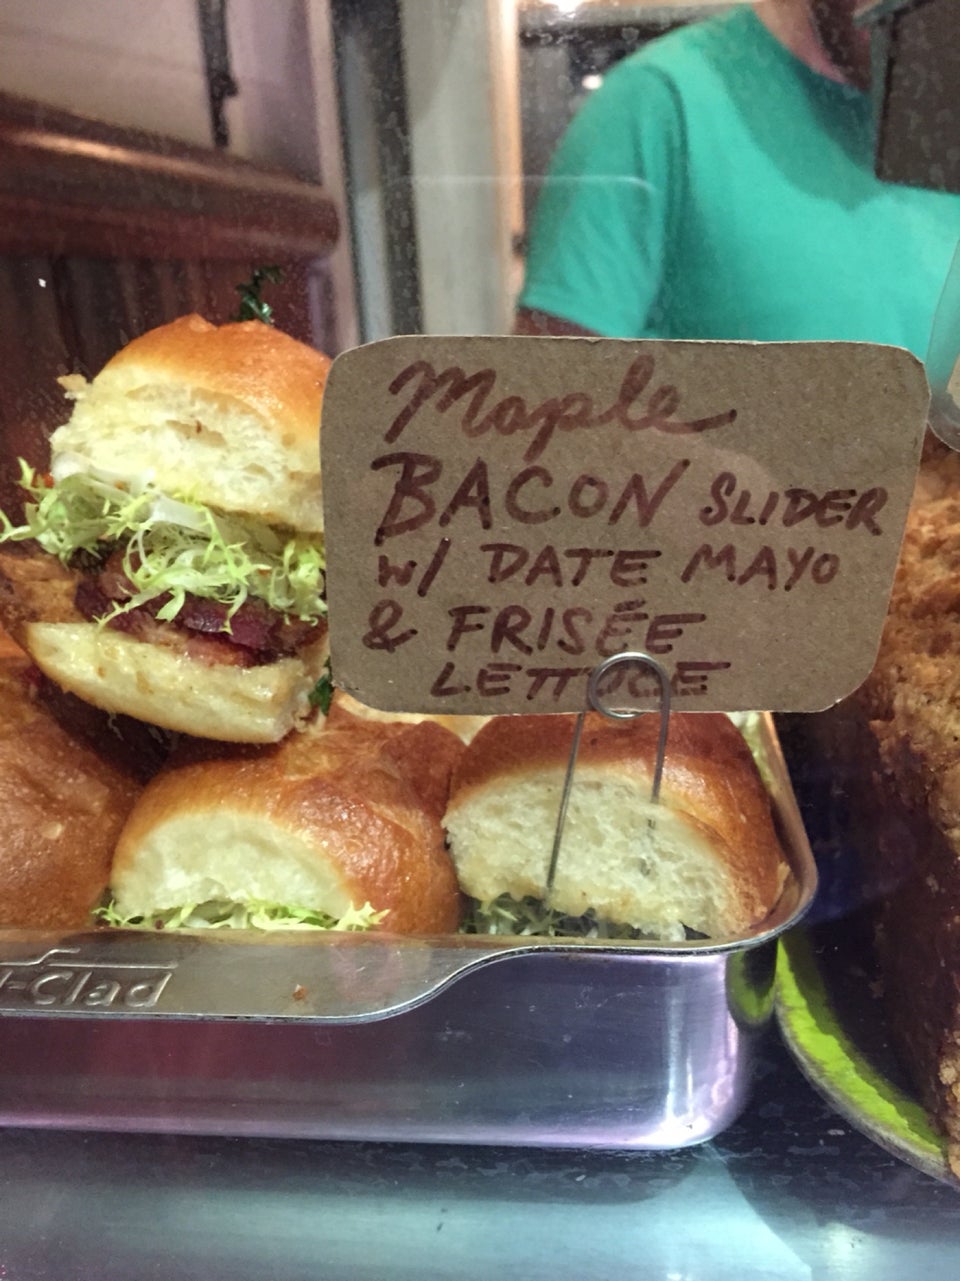 Maple
BACON SLIDER
W/ DATE MAYO
& FRISÉE
LETTUCE
-Clad